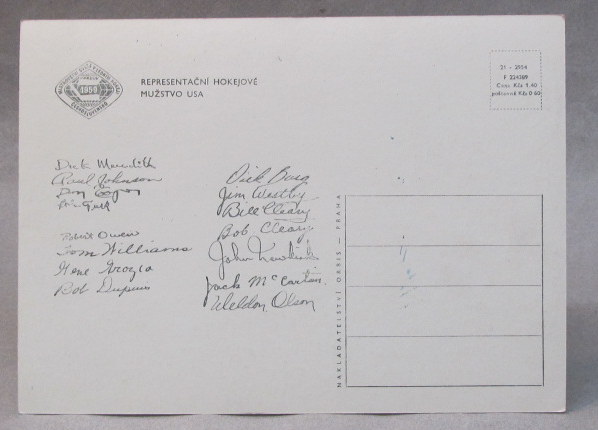 1959
REPRESENTAČNÍ HOKEJOVÉ
MUŽSTVO USA
21 – 2954
F 224389
Cena Kčs 1.40
pohlednice Kčs 0.60
Dick Meredith
Paul Johnson
Don
Bob Owen
Tom Williams
Gene Grazia
Bob Dupuis
Dick Burg
Jim Westby
Bill Cleary
Bob Cleary
John
Jack McCartan
Weldon Olson
NAKLADATELSTVÍ ORBIS — PRAHA